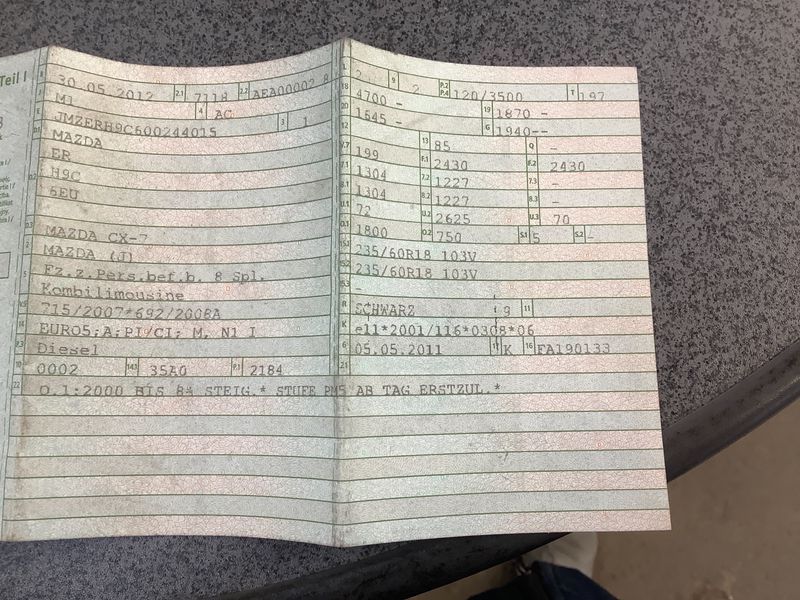 Teil I
B 30.05.2012 2.1 7118 2.2 AEA00002 8
J M1 4 AC
E JMZERH9C600244015 3 1
D.1 MAZDA
ER
D.2 H9C
6EU
D.3 MAZDA CX-7
2 MAZDA (J)
5 Fz.z.Pers.bef.b. 8 Spl.
Kombilimousine
V.9 715/2007*692/2008A
14 EURO5;A;PI/CI; M, N1 I
P.3 Diesel
10 0002 14.1 35A0 P.1 2184
22 O.1:2000 BIS 8% STEIG.* STUFE PM5 AB TAG ERSTZUL.*
L 2 9 2 P.2 P.4 120/3500 T 197
18 4700 - 19 1870 -
20 1645 - G 1940--
12 - 13 85 Q -
V.7 199 F.1 2430 F.2 2430
7.1 1304 7.2 1227 7.3 -
8.1 1304 8.2 1227 8.3 -
U.1 72 U.2 2625 U.3 70
O.1 1800 O.2 750 S.1 5 S.2 -
15.1 235/60R18 103V
15.2 235/60R18 103V
15.3 -
R SCHWARZ 9 11
K e11*2001/116*0308*06
6 05.05.2011 17 K 16 FA190133
21